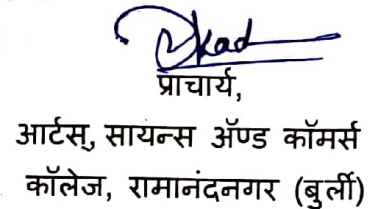 प्राचार्य,
आर्टस्, सायन्स अ‍ॅण्ड कॉमर्स
कॉलेज, रामानंदनगर (बुर्ली)